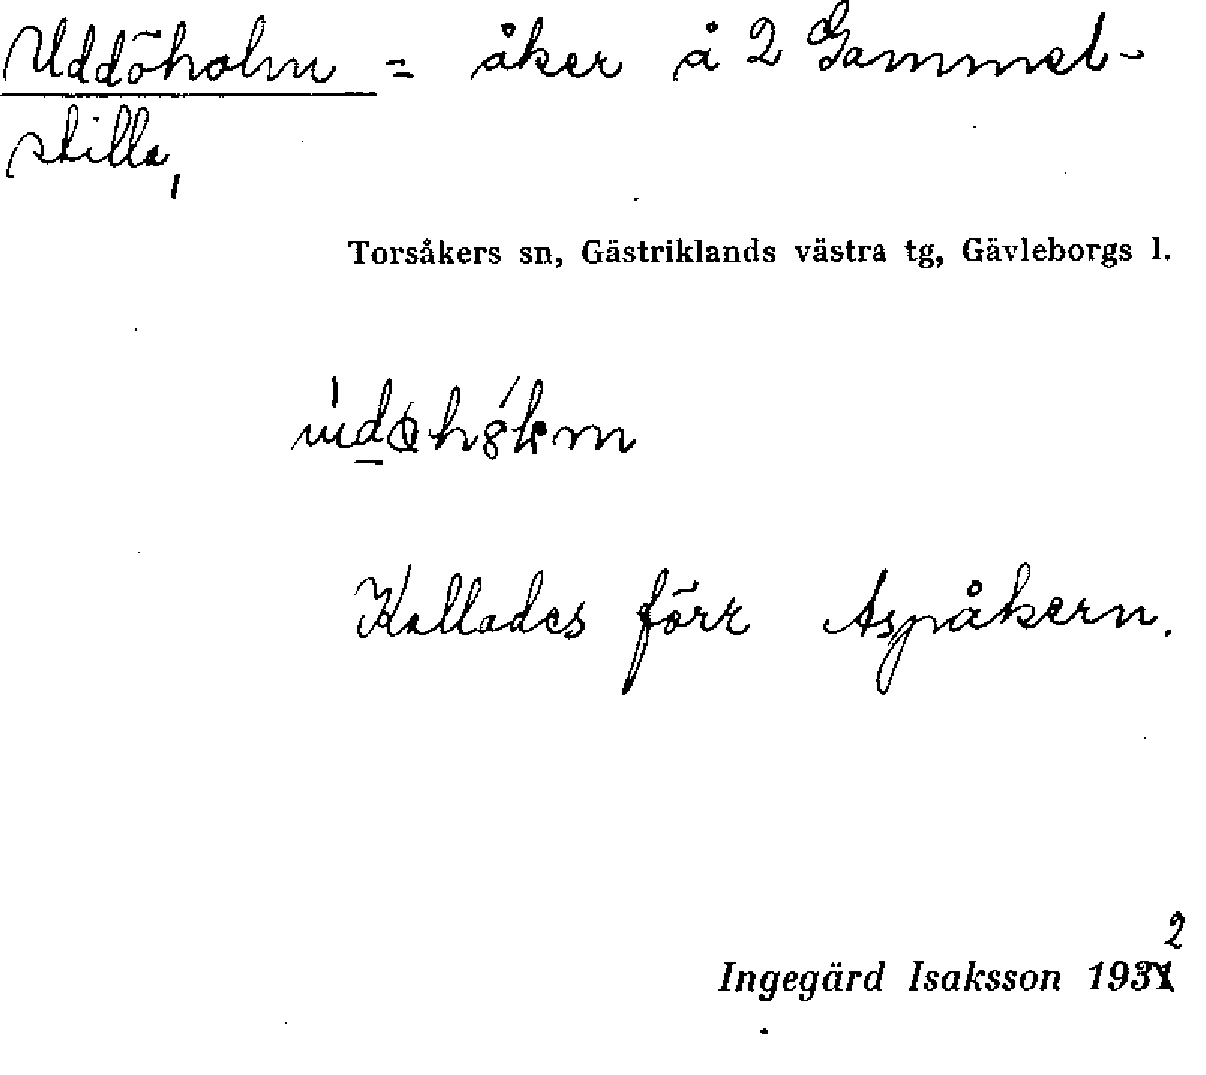 Uddöholm = åker å 2 Gammel-
stilla,
Torsåkers sn, Gästriklands västra tg, Gävleborgs l.
Kallades förr Aspåkern.
2
Ingegärd Isaksson 1931